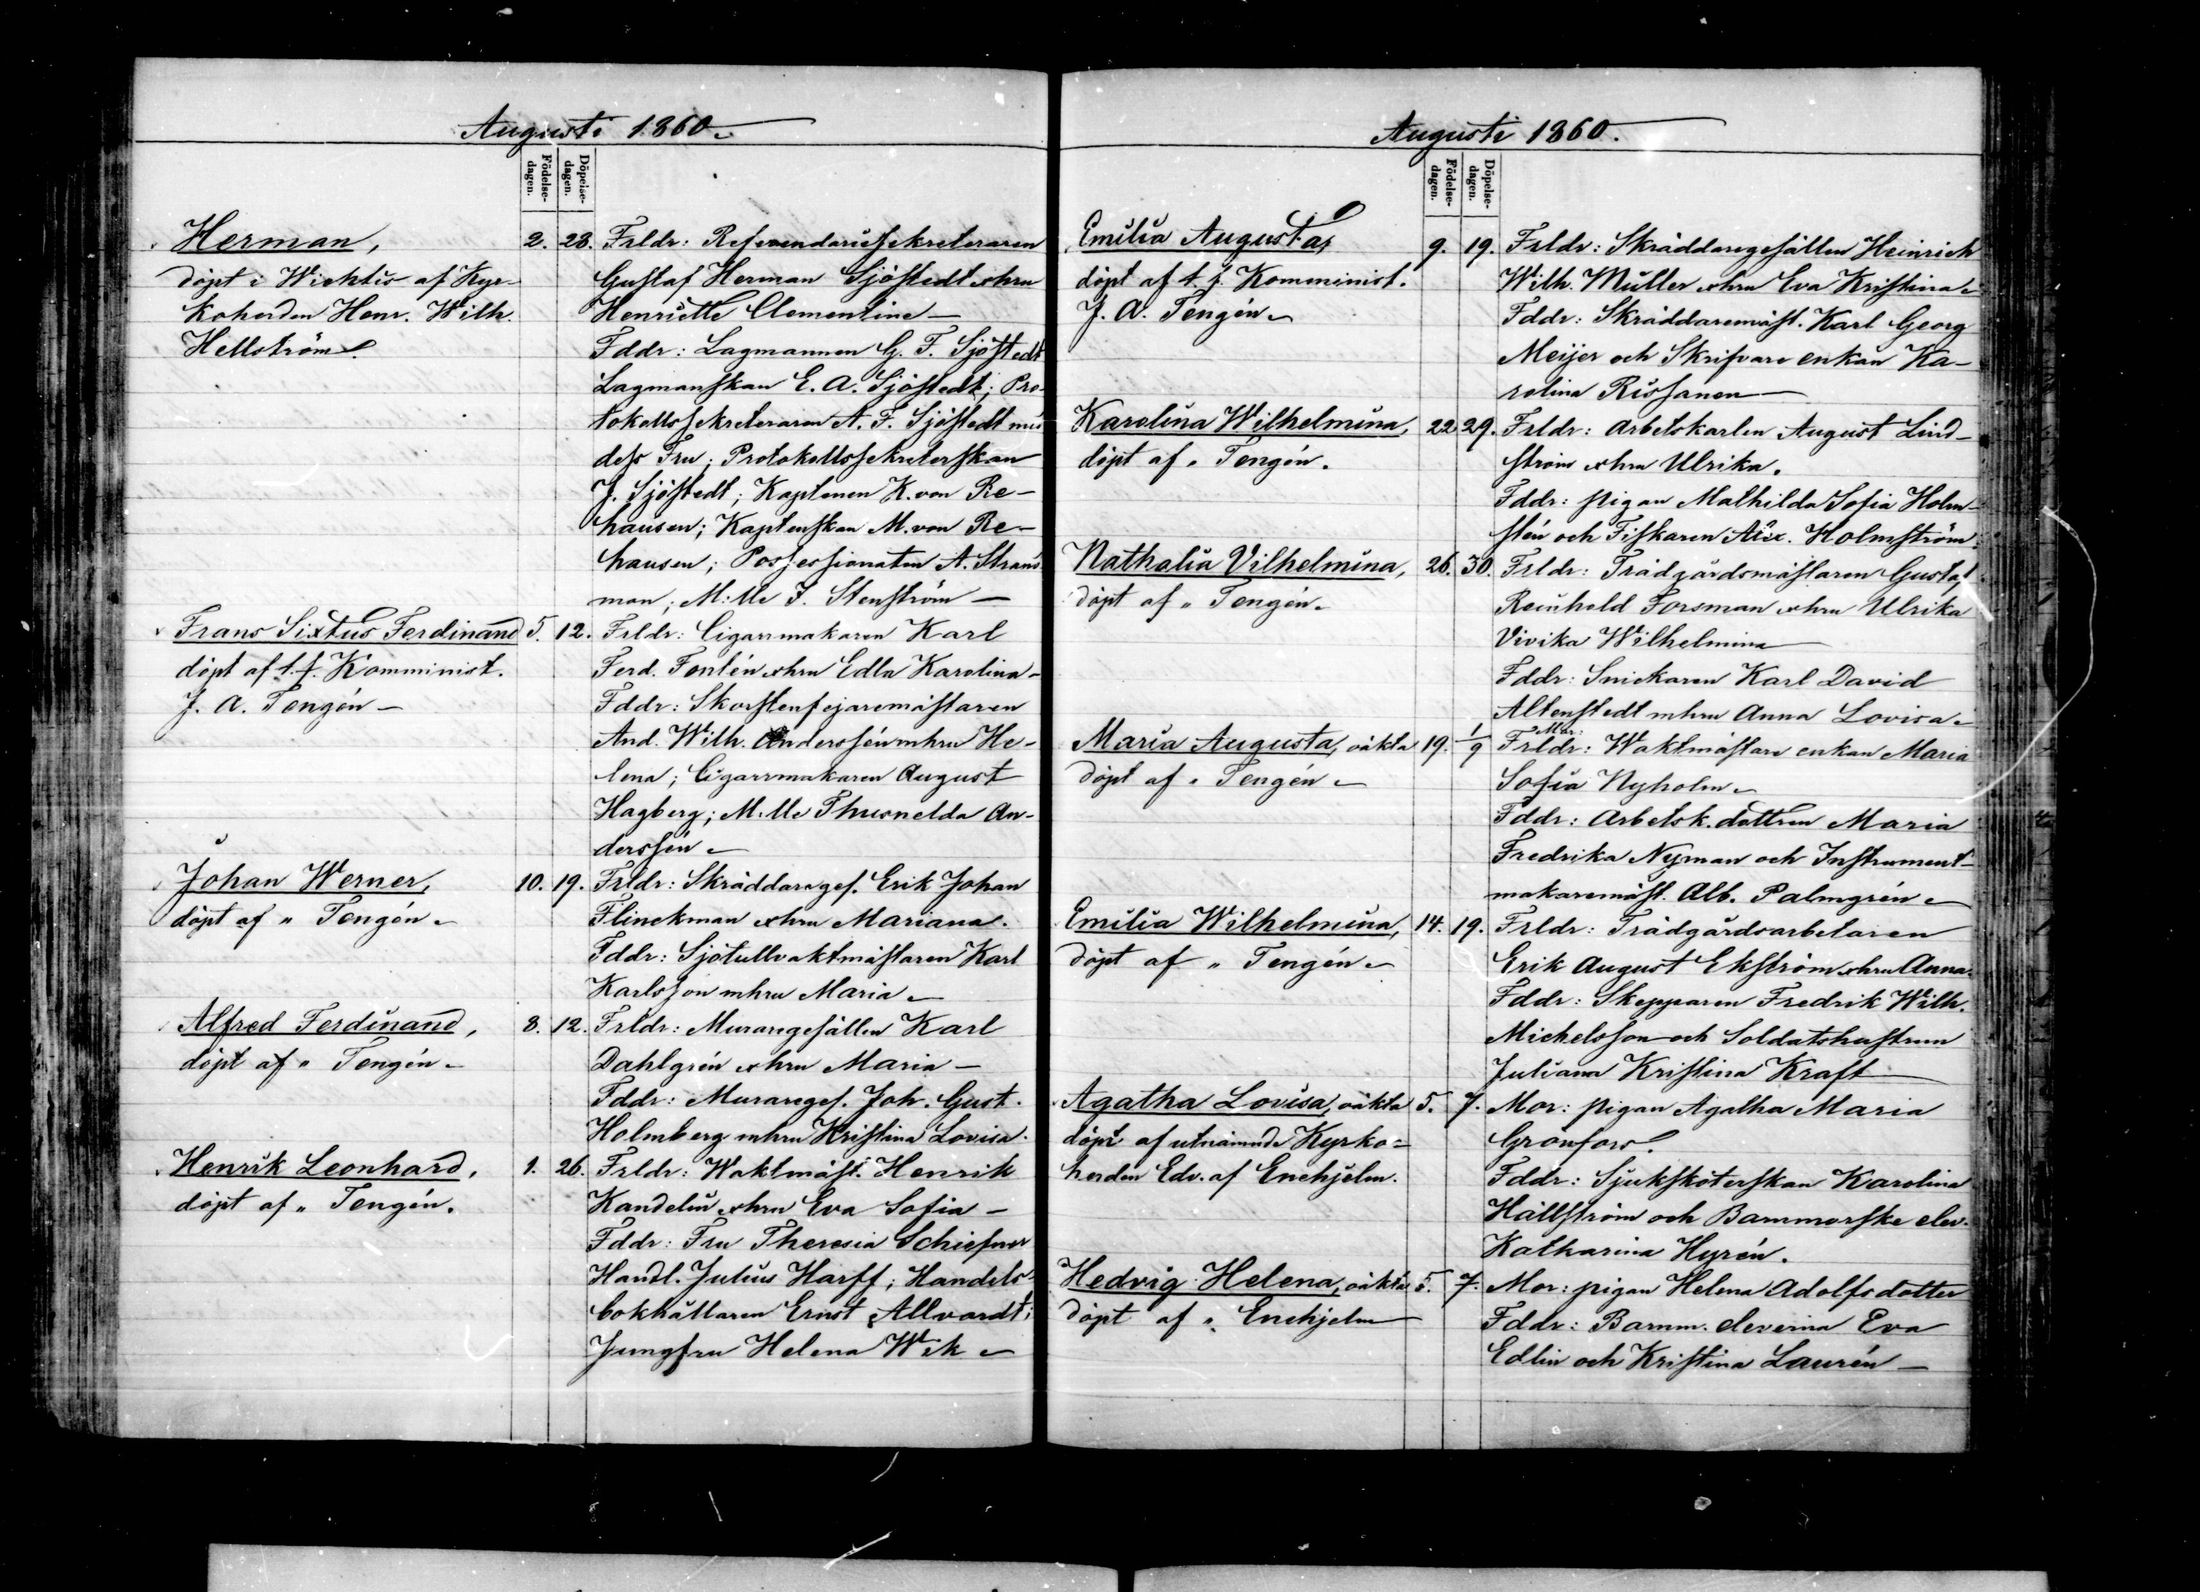 Augusti 1860.
Födelse-dagen.
Döpelse-dagen.
Herman,
döpt i Wichtis af Kyr-
koherden Henr. Wilh.
Hellström.
2. 23. Frldr: Referendariesekreteraren
Gustaf Herman Sjöstedt o hru
Henriette Clementine —
Fddr: Lagmannen G. F. Sjöstedt
Lagmanskan E. A. Sjöstedt; Pro-
tokollssekreteraren A. F. Sjöstedt med
dess Fru; Protokollssekreterskan
J. Sjöstedt; Kaptenen K. von Re-
hausen; Kaptenskan M. von Re-
hausen; Possessionaten A. Stras-
man; M:lle I. Stenström —
Frans Sixtus Ferdinand
döpt af t. f. Komminist.
J. A. Tengén —
5. 12. Frldr: Cigarrmakaren Karl
Ferd. Fontén o hru Edla Karolina -
Fddr: Skorstensfejaremästaren
And. Wilh. Anderssén m hru He-
lena; Cigarrmakaren August
Hagberg; M:lle Thusnelda An-
derssén
Johan Werner,
döpt af " Tengén
10. 19. Frldr: Skräddareges. Erik Johan
Flinckman o hru Mariana.
Fddr: Sjötullvaktmästaren Karl
Karlsson m hru Maria
Alfred Ferdinand,
döpt af " Tengén
8. 12. Frldr: Muraregesällen Karl
Dahlgrén o hru Maria —
Fddr: Murareges. Joh. Gust.
Holmberg m hru Kristina Lovisa.
Henrik Leonhard,
döpt af " Tengén.
1. 26. Frldr: Waktmäst. Henrik
Kandelin o hru Eva Sofia —
Fddr: Fru Theresia Schiefner
Handl. Julius Harff; Handels-
bokhållaren Ernst Allvardt;
Jungfru Helena Wik
Augusti 1860.
Födelse-dagen.
Döpelse-dagen.
Emilia Augusta,
döpt af t. f. Komminist.
J. A. Tengén
9. 19. Frldr: Skräddaregesällen Heinrich
Wilh. Müller o hru Eva Kristina
Fddr: Skräddaremäst. Karl Georg
Meijer och Skrifvare enkan Ka-
rolina Rissanen
Karolina Wilhelmina,
döpt af " Tengén.
22 29. Frldr: Arbetskarlen August Lind-
ström o hru Ulrika.
Fddr: pigan Mathilda Sofia Holm-
stén och Fiskaren Alex. Holmström
Nathalia Vilhelmina,
döpt af " Tengén
26. 30. Frldr: Trädgårdsmästaren Gustaf
Reinhold Forsman o hru Ulrika
Vivika Wilhelmina
Fddr: Snickaren Karl David
Altenstedt m hru Anna Lovisa
Maria Augusta, oäkta
döpt af " Tengén
19. 1/9 Frldr: Mor: Waktmästare enkan Maria
Sofia Nyholm
Fddr: Arbetsk. dottren Maria
Fredrika Nyman och Instrument-
makaremäst. Alb. Palmgrén
Emilia Wilhelmina,
döpt af " Tengén
14. 19. Frldr: Trädgårdsarbetaren
Erik August Ekström o hru Anna.
Fddr: Skepparen Fredrik Wilh.
Michelsson och Soldatshustrun
Juliana Kristina Kraft
Agatha Lovisa, oäkta
döpt af utnämnde Kyrko-
herden Edv. af Enehjelm.
5. 7. Mor: pigan Agatha Maria
Grönfors.
Fddr: Sjuksköterskan Karolina
Hällström och Barnmorske elev.
Katharina Hyrén.
Hedvig Helena, oäkta
döpt af " Enehjelm
5. 7. Mor: pigan Helena Adolfsdotter
Fddr: Barnm. eleverna Eva
Edlin och Kristina Laurén —